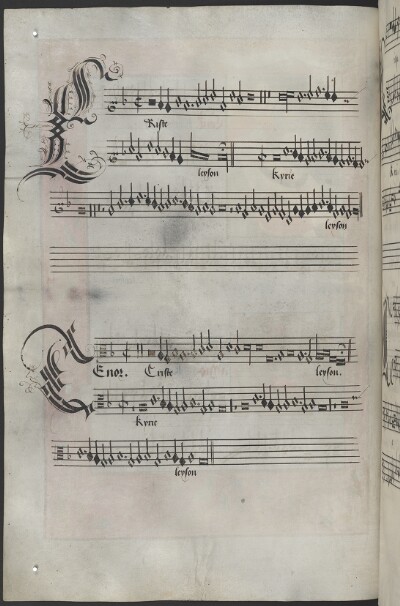 Criste
leyson Kyrie
leyson
Tenor. Criste leyson.
Kyrie
leyson